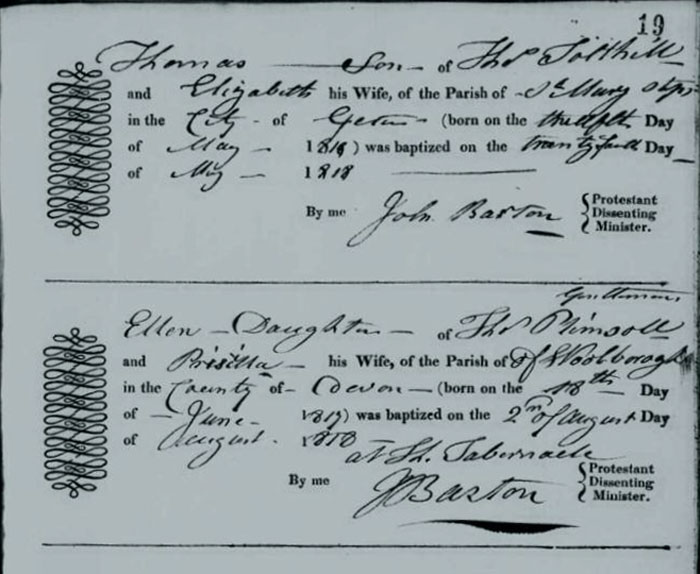 19
Thomas — Son — of Thos Tothill
and Elizabeth his Wife, of the Parish of St Mary Steps
in the City - of Exeter (born on the twelfth Day
of May — 1818) was baptized on the Day
of May — 1818
By me John Baston Protestant
Dissenting
Minister.
Gentleman
Ellen - Daughter - of Thos Plimsoll
and Prisilla - his Wife, of the Parish of Woolborough
in the County of - Devon - (born on the 18th Day
of - June - ) was baptized on the 2nd of August Day
of August.
at The Tabernacle
By me J Baston Protestant
Dissenting
Minister.